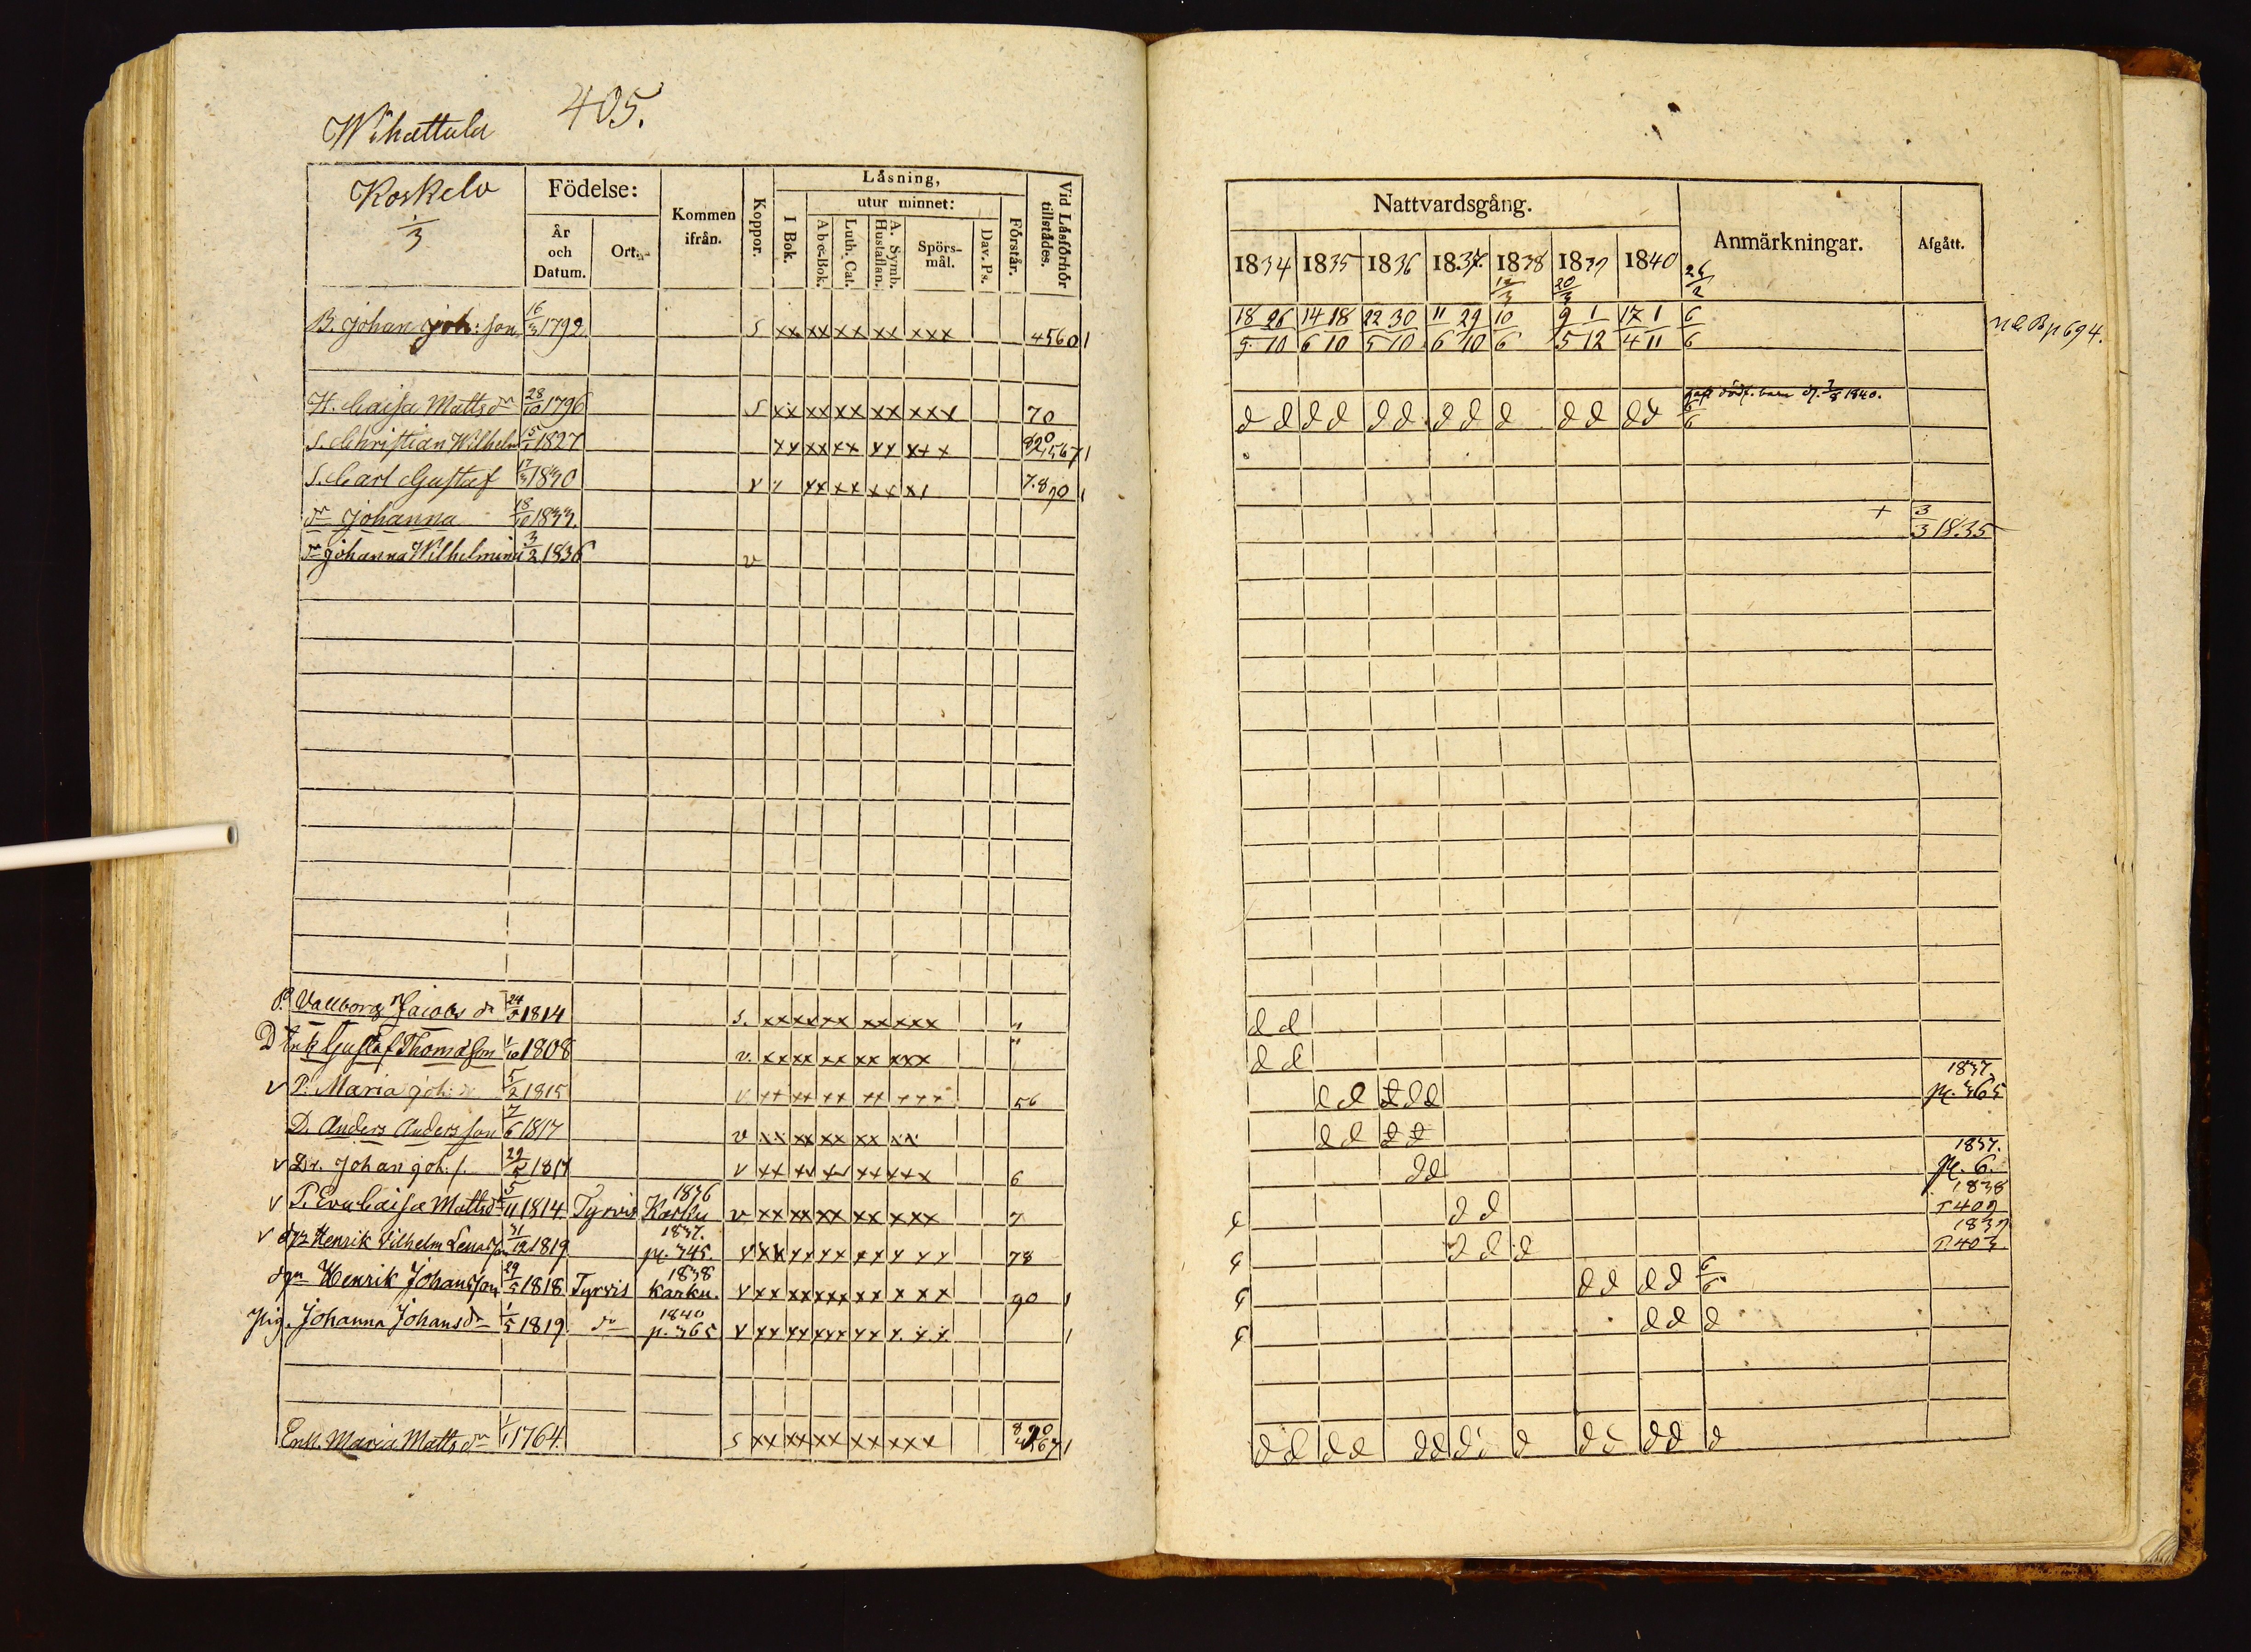 405.
Wihattula
Koskelo
1/3
Födelse:
År och Datum.
Ort.
Kommen ifrån.
Koppor.
Låsning,
I Bok.
utur minnet:
Abc-Bok.
Luth. Cat.
A. Symb. Hustaflan.
Spörs-mål.
Dav. Ps.
Förstår.
Vid Läsförhör tillstädes.
Nattvardsgång.
1834 1835 1836 1837. 1838 1839 1840
Anmärkningar.
Afgått.
B. Johan Joh: son 16/3 1792. S xx xx xx xx xxx 4560 1
18/5 26/10 14/6 18/10 22/5 30/10 11/6 29/10 10/6 9/5 1/12 17/4 1/11 6/6
H. Caisa Mattsdr 28/10 1796 S xx xx xx xx xxx 70
d d d d d d d d d d d d d 6/6 1840.
S. Christian Wilhelm 5/1 1827 xx xx xx xx xx x
S. Carl Gustaf 17/3 1830 v
dr Johanna 18/10 1833. + 3/3 1835
dr Johanna Wilhelmina 3/2 1836 v
P. Vallborg Jacobs dr 24/5 1814 s. xx xx xx xx xxx " d d
D Enk Gustaf Thomasson 1/10 1808 v. xx xx xx xx xxx " d d
v P. Maria Joh: dr 5/2 1815 v xx xx xx xx xxx 56 d d d d d 1837. p. 365
D. Anders Andersson 7/6 1817 v xx xx xx xx xx d d d d
v Dr. Johan Joh. s. 29/5 1817 v xx xx xx xx xxx 6 d d 1837. p. 6.
v P. Eva Caisa Mattsdr 5/11 1814 Tyrvis 1836 Karku v xx xx xx xx xxx 7 d d 1838 p 409
v Henrik Vilhelm 31/12 1819 1837. p. 345. v xx xx xx xx x xx 78 d d d 1839 p 403
Henrik Johansson 29/5 1818 Tyrvis 1838 Karku. v xx xx xxx xx x xx 90 1 d d d d 6/6
Pig. Johanna Johansdr 1/5 1819 do 1840 p. 365 v xx xx xxx xx x xx 1 d d d
Enk. Maria Mattsdr 1/1 1764. S xx xx xx xx xxx 1 d d d d d d d d d d d d d d